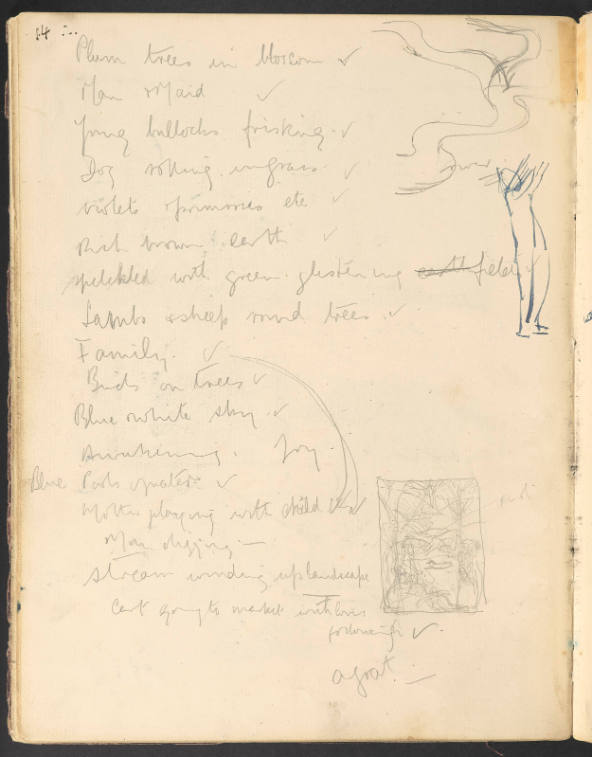 14
Plum trees in blossom ✓
Man & Maid ✓
Young bullocks frisking. ✓
Dog rolling in grass ✓
violets & primroses etc ✓
Rich brown earth ✓
speckled with green. glistening earth fields ✓
Lambs & sheep round trees. ✓
Family. ✓
Birds on trees ✓
Blue & white sky. ✓
Awakening. Joy.
Blue Pools of water ✓
Mother playing with child ✓
Man digging —
stream winding up landscape
Cart going to market with
following ✓.
a goat. —